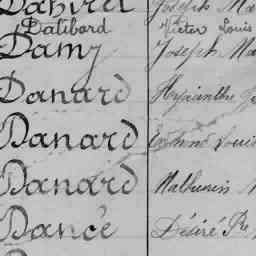 Joseph Ma
Dalibard Victor Louis
Damy Joseph Ma
Danard Hyacinthe
Danard Edmond Louis
Danard Mathurin
Dancé Désiré